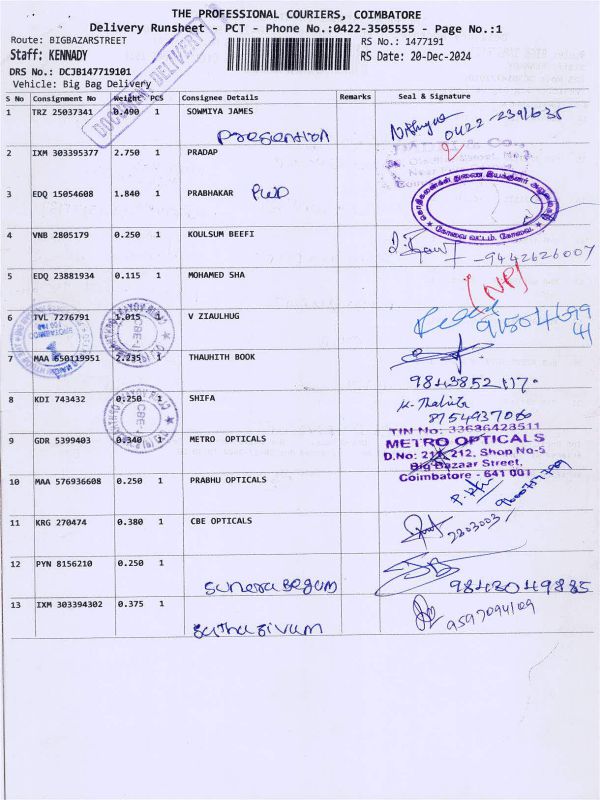 THE PROFESSIONAL COURIERS, COIMBATORE
Delivery Runsheet - PCT - Phone No.:0422-3505555 - Page No.:1
Route: BIGBAZARSTREET
RS No.: 1477191
Staff: KENNADY
RS Date: 20-Dec-2024
DRS No.: DCJB147719101
Vehicle: Big Bag Delivery
DOCUMENT DELIVERY
S No Consignment No Weight PCS Consignee Details Remarks Seal & Signature
1 TRZ 25037341 0.490 1 SOWMIYA JAMES
0422-2391635
2 IXM 303395377 2.750 1 PRADAP
3 EDQ 15054608 1.840 1 PRABHAKAR PWD
கோவை வட்டம், கோவை.
4 VNB 2805179 0.250 1 KOULSUM BEEFI
-9442626007
5 EDQ 23881934 0.115 1 MOHAMED SHA
(NP)
6 TVL 7276791 1.015 1 V ZIAULHUG
7 MAA 650119951 2.235 1 THAUHITH BOOK
9843852117.
8 KDI 743432 0.250 1 SHIFA
8754937060
9 GDR 5399403 0.340 1 METRO OPTICALS
TIN No: 33636428511
METRO OPTICALS
D.No: 211, 212, Shop No-5
Big Bazaar Street,
Coimbatore - 641 001
10 MAA 576936608 0.250 1 PRABHU OPTICALS
11 KRG 270474 0.380 1 CBE OPTICALS
2203003
12 PYN 8156210 0.250 1
Sunera Begum
9843049885
13 IXM 303394302 0.375 1
Sathasivam
9597094109